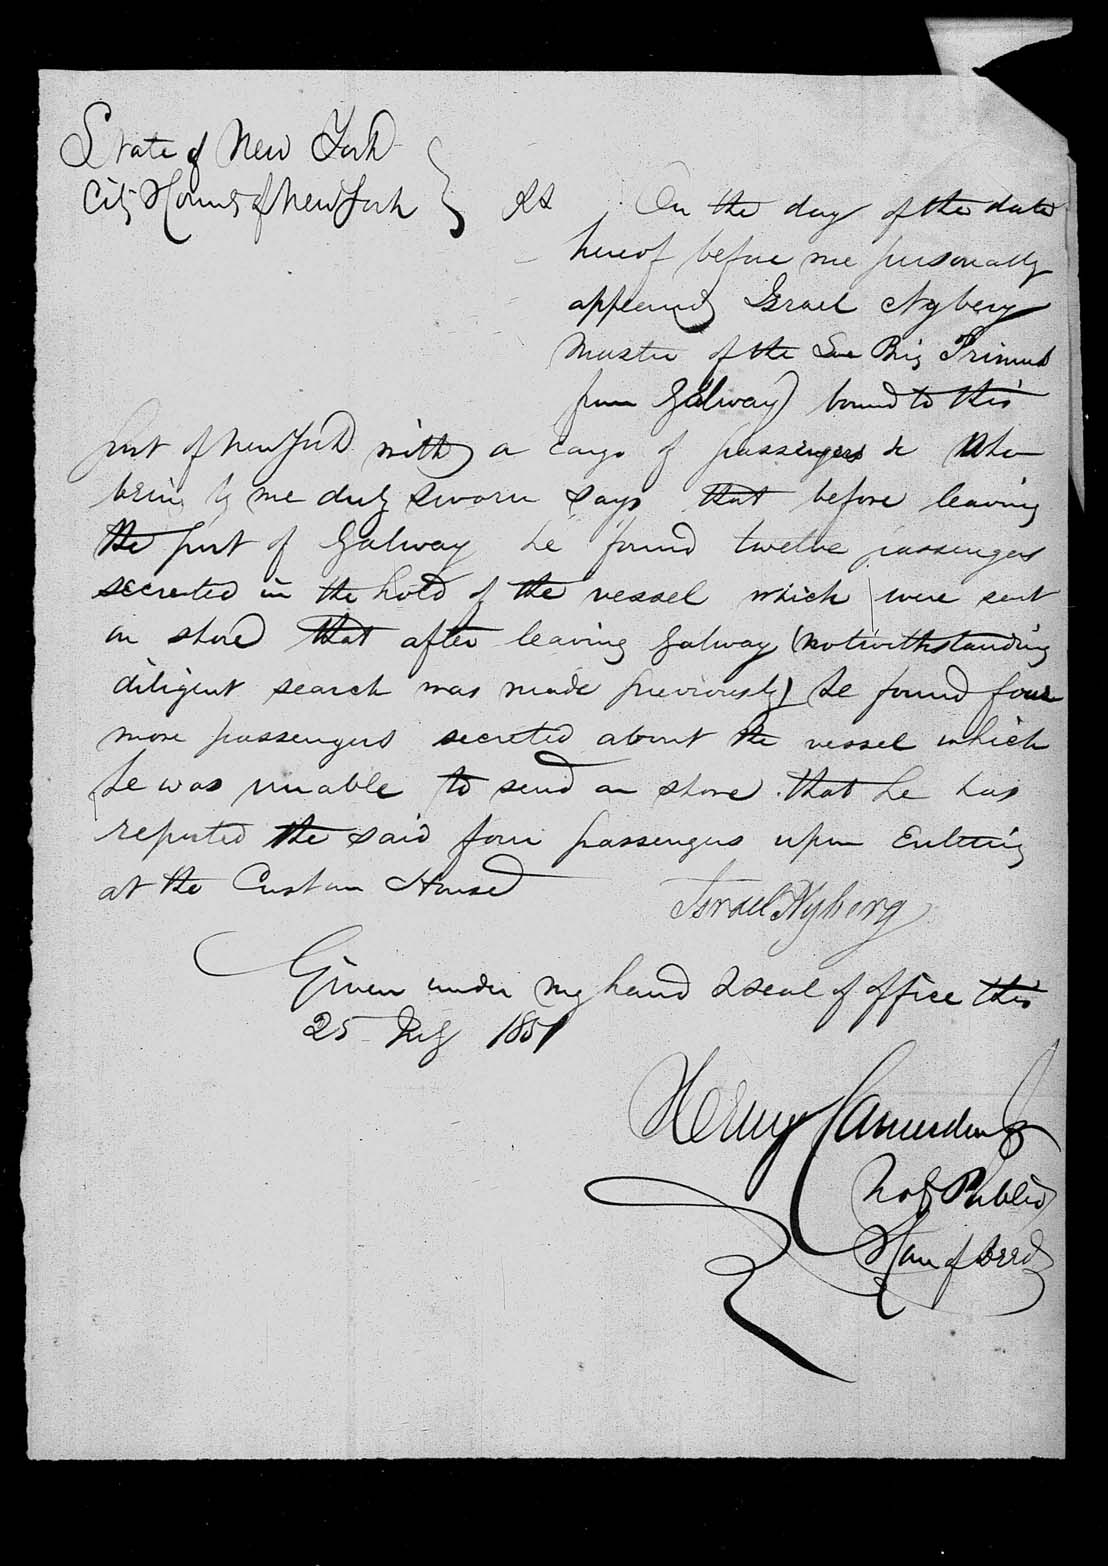 State of New York
City & County of New York } SS On the day of the date
hereof before me personally
appeared Israel Nyberg
Master of the Swe Brig Primus
from Galway bound to this
port of New York with a cargo of passengers &c who
being by me duly sworn says that before leaving
the port of Galway he found twelve passengers
secreted in the hold of the vessel which were sent
on shore that after leaving Galway (notwithstanding
diligent search was made previously) he found four
more passengers secreted about the vessel which
he was unable to send on shore. that he has
reported the said four passengers upon Entering
at the Custom House
Israel Nyberg
Given under my hand & seal of office this
25 1851
Henry
Noty Public
& Com of Deeds